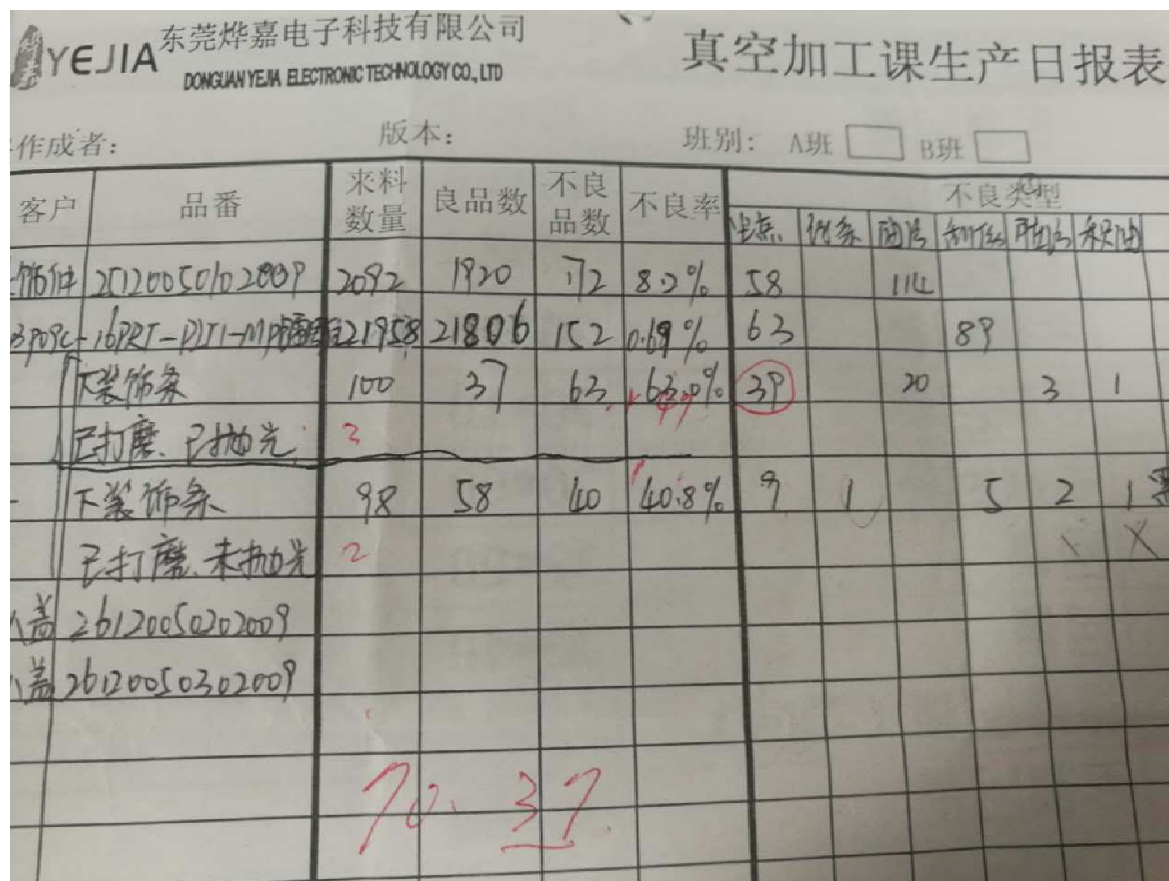 YEJIA 东莞烨嘉电子科技有限公司
DONGUAN YEJIA ELECTRONIC TECHNOLOGY CO., LTD
真空加工课生产日报表
作成者： 版本： 班别： A班 B班
客户 品番 来料数量 良品数 不良品数 不良率 不良类型
饰件 2512005010 2009 2092 1920 172 8.2% 58 114
21958 21806 152 0.69% 63 89
下装饰条 100 37 63 63.0% 39 20 3 1
已打磨、已抛光 2
下装饰条 98 58 40 40.8% 9 1 5 2 1
已打磨、未抛光 2
盖 26120050202009
盖 26120050302009
70. 37